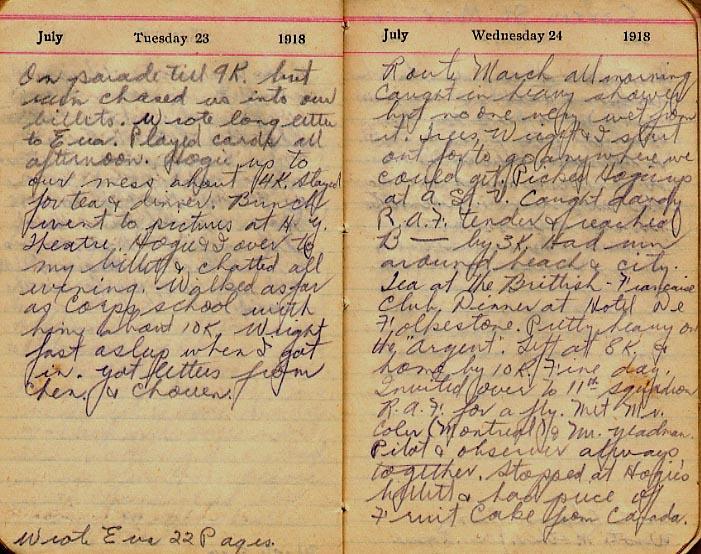 July Tuesday 23 1918
On parade till 9K. but
rain chased us into our
billets. Wrote long letter
to Eva. Played cards all
afternoon. Hogie up to
our mess about 4K. Stayed
for tea & dinner. Bunch
went to pictures at H. Y.
Theatre. Hogie & I over to
my billet & chatted all
evening. Walked as far
as Corps school with
him about 10K. Wright
fast asleep when I got
in. Got letters from
Chen. & Chouen.
Wrote Eva 22 Pages.
July Wednesday 24 1918
Route March all morning
Caught in heavy shower
but no one very wet from
it. Trees, Wright & I start
out for to go anywhere we
could get. Picked Hogie up
at A. Caught dandy
R.A.F. tender & reached
B — by 3K. Had run
around beach & city.
Tea at the Brittish-Francaise
Club. Dinner at Hotel De
Folkestone. Pretty heavy on
the "argent". Left at 8K. &
home by 10K. Fine day.
Invited over to 11th squadron
R.A.F. for a fly. Met Mr.
Coler (Montreal) & Mr. Yeadman.
Pilot & observer allways
together. Stopped at Hogie's
billet & had piece of
Fruit Cake from Canada.